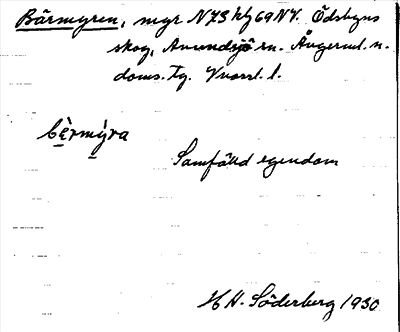 Bärmyren, myr N73 kfg 69 NV. Ödsbyns
skog, Anundsjö sn. Ångerml. n.
doms. Tg. Vnorrl. l.
bèrmýra
Samfälld egendom
H N. Söderberg 1930